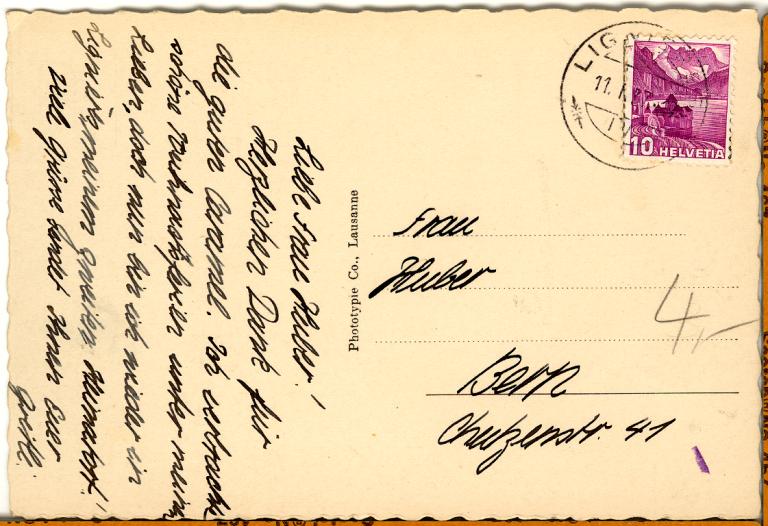 Liebe Frau Huber!
Herzlichen Dank für
die guten Caramel. Ich verbrachte
schöne Weihnachtsferien unter meinen
Lieben, doch nun bin ich wieder in
Ligniéres meinem zweiten Heimatort!
viele Grüsse sendet Ihnen Euer
Greitli.
Phototypie Co., Lausanne
LIGN
11. I.
10 HELVETIA
Frau
Huber
Bern
Chutzenstr. 41
4,-